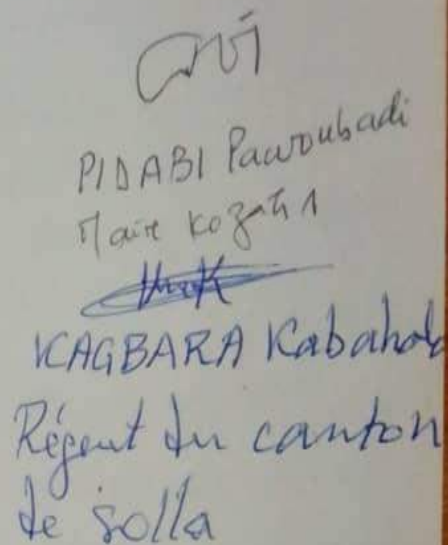 PIDABI Pawoubadi
Maire Kozah 1
KAGBARA
Régent du canton
de Solla